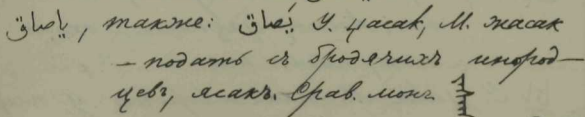 ياصاق, также: يَصاق У. цасак, М. жасак
— подать съ бродячихъ инород-
цевъ, ясакъ. Срав. монг.